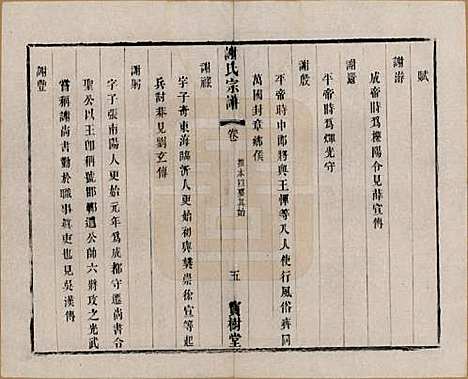 賦
謝游
成帝時爲櫟陽令見薛宣傳
謝遷
平帝時爲
光守
謝殷
平帝時中郎將與王惲等八人使行風俗齊同
萬國封章鄉侯
謝氏宗譜
卷
五
寶樹堂
謝祿
字子奇東海臨沂人更始初與樊崇徐宣等起
兵封
見劉玄傳
謝躬
字子張南陽人更始元年爲成都守遷尚書令
聖公以王郎稱號邯鄲遣公帥六將攻之光武
嘗稱謝尚書勤於職事眞吏也見吳漢傳
謝豐